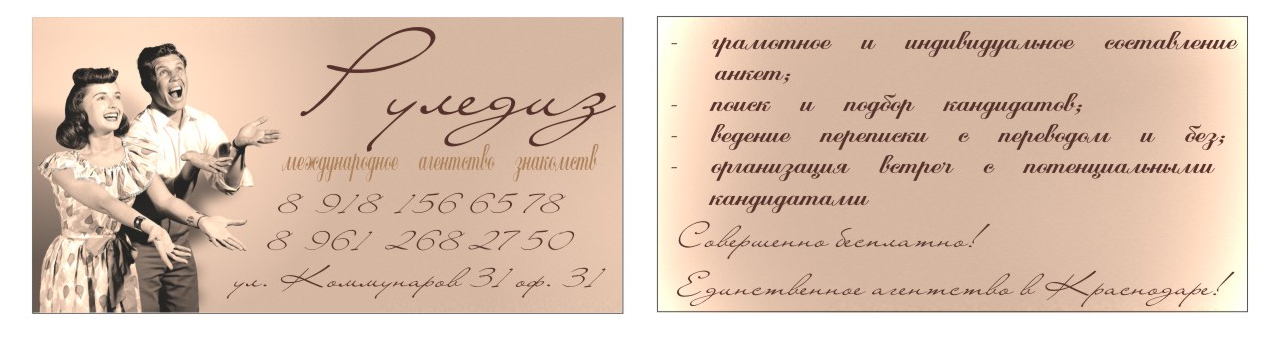 Руледиз
международное агентство знакомств
8 918 156 65 78
8 961 268 27 50
ул. Коммунаров 31 оф. 31
- грамотное и индивидуальное составление
анкет;
- поиск и подбор кандидатов;
- ведение переписки с переводом и без;
- организация встреч с потенциальными
кандидатами
Совершенно бесплатно!
Единственное агентство в Краснодаре!